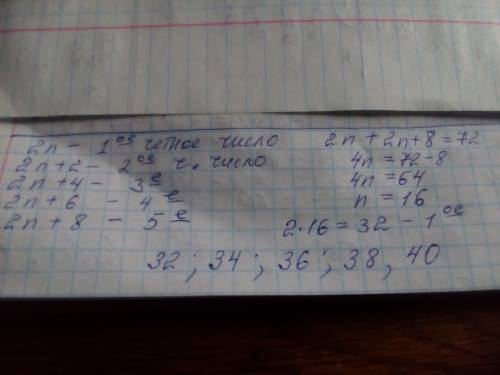 2n - 1ое четное число
2n+2 - 2ое ч. число
2n+4 - 3е
2n+6 - 4е
2n+8 - 5е
2n + 2n+8 = 72
4n = 72-8
4n = 64
n = 16
2·16 = 32 - 1ое
32; 34; 36; 38, 40